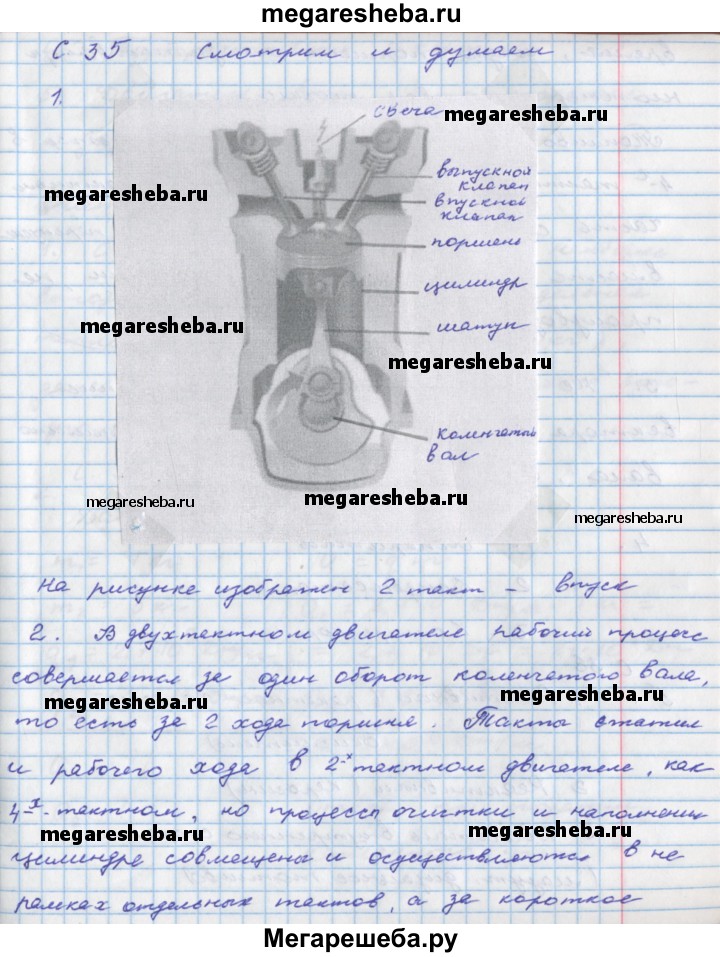 megaresheba.ru
С 35 Смотрим и думаем
1.
свеча
megaresheba.ru
выпускной
клапан
megaresheba.ru
впускной
клапан
поршень
цилиндр
megaresheba.ru
шатун
megaresheba.ru
коленчатый
вал
megaresheba.ru
megaresheba.ru
megaresheba.ru
На рисунке изображен 2 такт – впуск
2. В двухтактном двигателе рабочий процесс
совершается за один оборот коленчатого вала,
megaresheba.ru
megaresheba.ru
то есть за 2 хода поршня. Такты сжатия
и рабочего хода в 2-х тактном двигателе, как
4-х-тактном, но процессы очистки и наполнения
megaresheba.ru
megaresheba.ru
цилиндре совмещены и осуществляются в не
рамках отдельных тактов, а за короткое
Мегарешеба.ру